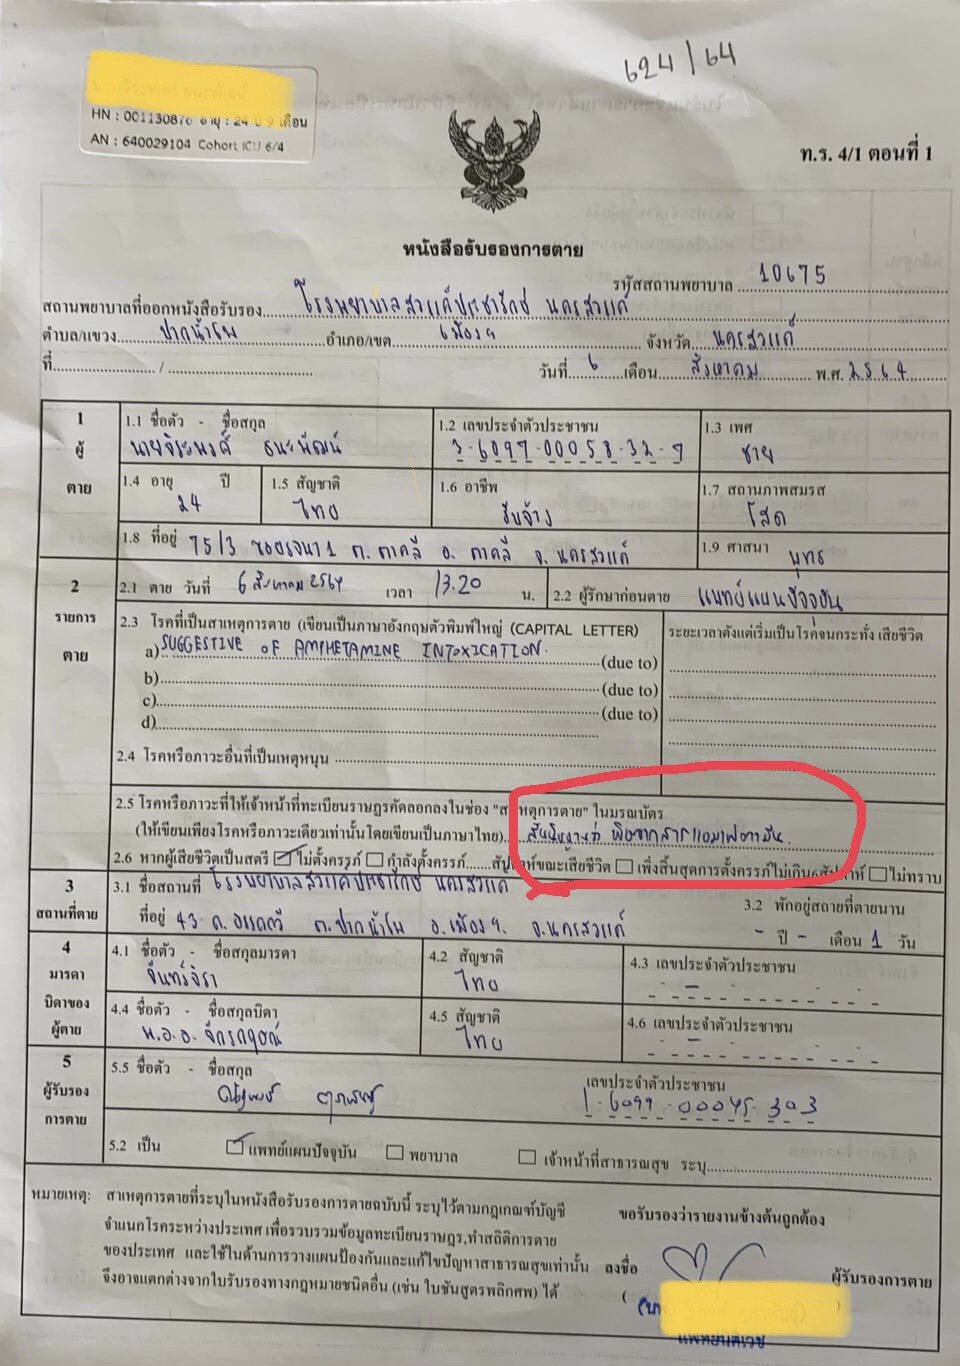 624/64
HN : 001130876 อายุ : 24 ปี 9 เดือน
AN : 640029104 Cohort ICU 6/4
ท.ร. 4/1 ตอนที่ 1
หนังสือรับรองการตาย
รหัสสถานพยาบาล 10675
สถานพยาบาลที่ออกหนังสือรับรอง โรงพยาบาลสวรรค์ประชารักษ์ นครสวรรค์
ตำบล/แขวง ปากน้ำโพ อำเภอ/เขต เมืองฯ จังหวัด นครสวรรค์
ที่ / วันที่ 6 เดือน สิงหาคม พ.ศ. 2564
1 ผู้ตาย
1.1 ชื่อตัว - ชื่อสกุล 1.2 เลขประจำตัวประชาชน 1.3 เพศ
นายจิระพงศ์ ธนะพัฒน์ 3-6097-00058-32-7 ชาย
1.4 อายุ ปี 1.5 สัญชาติ 1.6 อาชีพ 1.7 สถานภาพสมรส
24 ไทย รับจ้าง โสด
1.8 ที่อยู่ 75/3 ต. ตาคลี อ. ตาคลี จ. นครสวรรค์ 1.9 ศาสนา พุทธ
2 รายการตาย
2.1 ตาย วันที่ 6 สิงหาคม 2564 เวลา 13.20 น. 2.2 ผู้รักษาก่อนตาย แพทย์แผนปัจจุบัน
2.3 โรคที่เป็นสาเหตุการตาย (เขียนเป็นภาษาอังกฤษตัวพิมพ์ใหญ่ (CAPITAL LETTER) ระยะเวลาตั้งแต่เริ่มเป็นโรคจนกระทั่ง เสียชีวิต
a) SUGGESTIVE OF AMPHETAMINE INTOXICATION. (due to)
b) (due to)
c) (due to)
d)
2.4 โรคหรือภาวะอื่นที่เป็นเหตุหนุน
2.5 โรคหรือภาวะที่ให้เจ้าหน้าที่ทะเบียนราษฎรคัดลอกลงในช่อง "สาเหตุการตาย" ในมรณบัตร
(ให้เขียนเพียงโรคหรือภาวะเดียวเท่านั้นโดยเขียนเป็นภาษาไทย) สันนิษฐานว่า พิษจากสารแอมเฟตามีน
2.6 หากผู้เสียชีวิตเป็นสตรี ไม่ตั้งครรภ์ กำลังตั้งครรภ์ สัปดาห์ขณะเสียชีวิต เพิ่งสิ้นสุดการตั้งครรภ์ไม่เกิน6สัปดาห์ ไม่ทราบ
3 สถานที่ตาย
3.1 ชื่อสถานที่ โรงพยาบาลสวรรค์ประชารักษ์ นครสวรรค์ 3.2 พักอยู่สถายที่ตายนาน
ที่อยู่ 43 ถ. อรรถกวี ต. ปากน้ำโพ อ. เมืองฯ. จ. นครสวรรค์ - ปี - เดือน 1 วัน
4 มารดาบิดาของผู้ตาย
4.1 ชื่อตัว - ชื่อสกุลมารดา 4.2 สัญชาติ 4.3 เลขประจำตัวประชาชน
จันทร์จิรา ไทย
4.4 ชื่อตัว - ชื่อสกุลบิดา 4.5 สัญชาติ 4.6 เลขประจำตัวประชาชน
พ.อ.อ. จักรกฤษณ์ ไทย
5 ผู้รับรองการตาย
5.5 ชื่อตัว - ชื่อสกุล เลขประจำตัวประชาชน
1-6099-00045-303
5.2 เป็น แพทย์แผนปัจจุบัน พยาบาล เจ้าหน้าที่สาธารณสุข ระบุ
หมายเหตุ: สาเหตุการตายที่ระบุในหนังสือรับรองการตายฉบับนี้ ระบุไว้ตามกฎเกณฑ์บัญชี
จำแนกโรคระหว่างประเทศ เพื่อรวบรวมข้อมูลทะเบียนราษฎร,ทำสถิติการตาย
ของประเทศ และใช้ในด้านการวางแผนป้องกันและแก้ไขปัญหาสาธารณสุขเท่านั้น
จึงอาจแตกต่างจากใบรับรองทางกฎหมายชนิดอื่น (เช่น ใบชันสูตรพลิกศพ) ได้
ขอรับรองว่ารายงานข้างต้นถูกต้อง
ลงชื่อ ผู้รับรองการตาย
( )
แพทย์นิติเวช